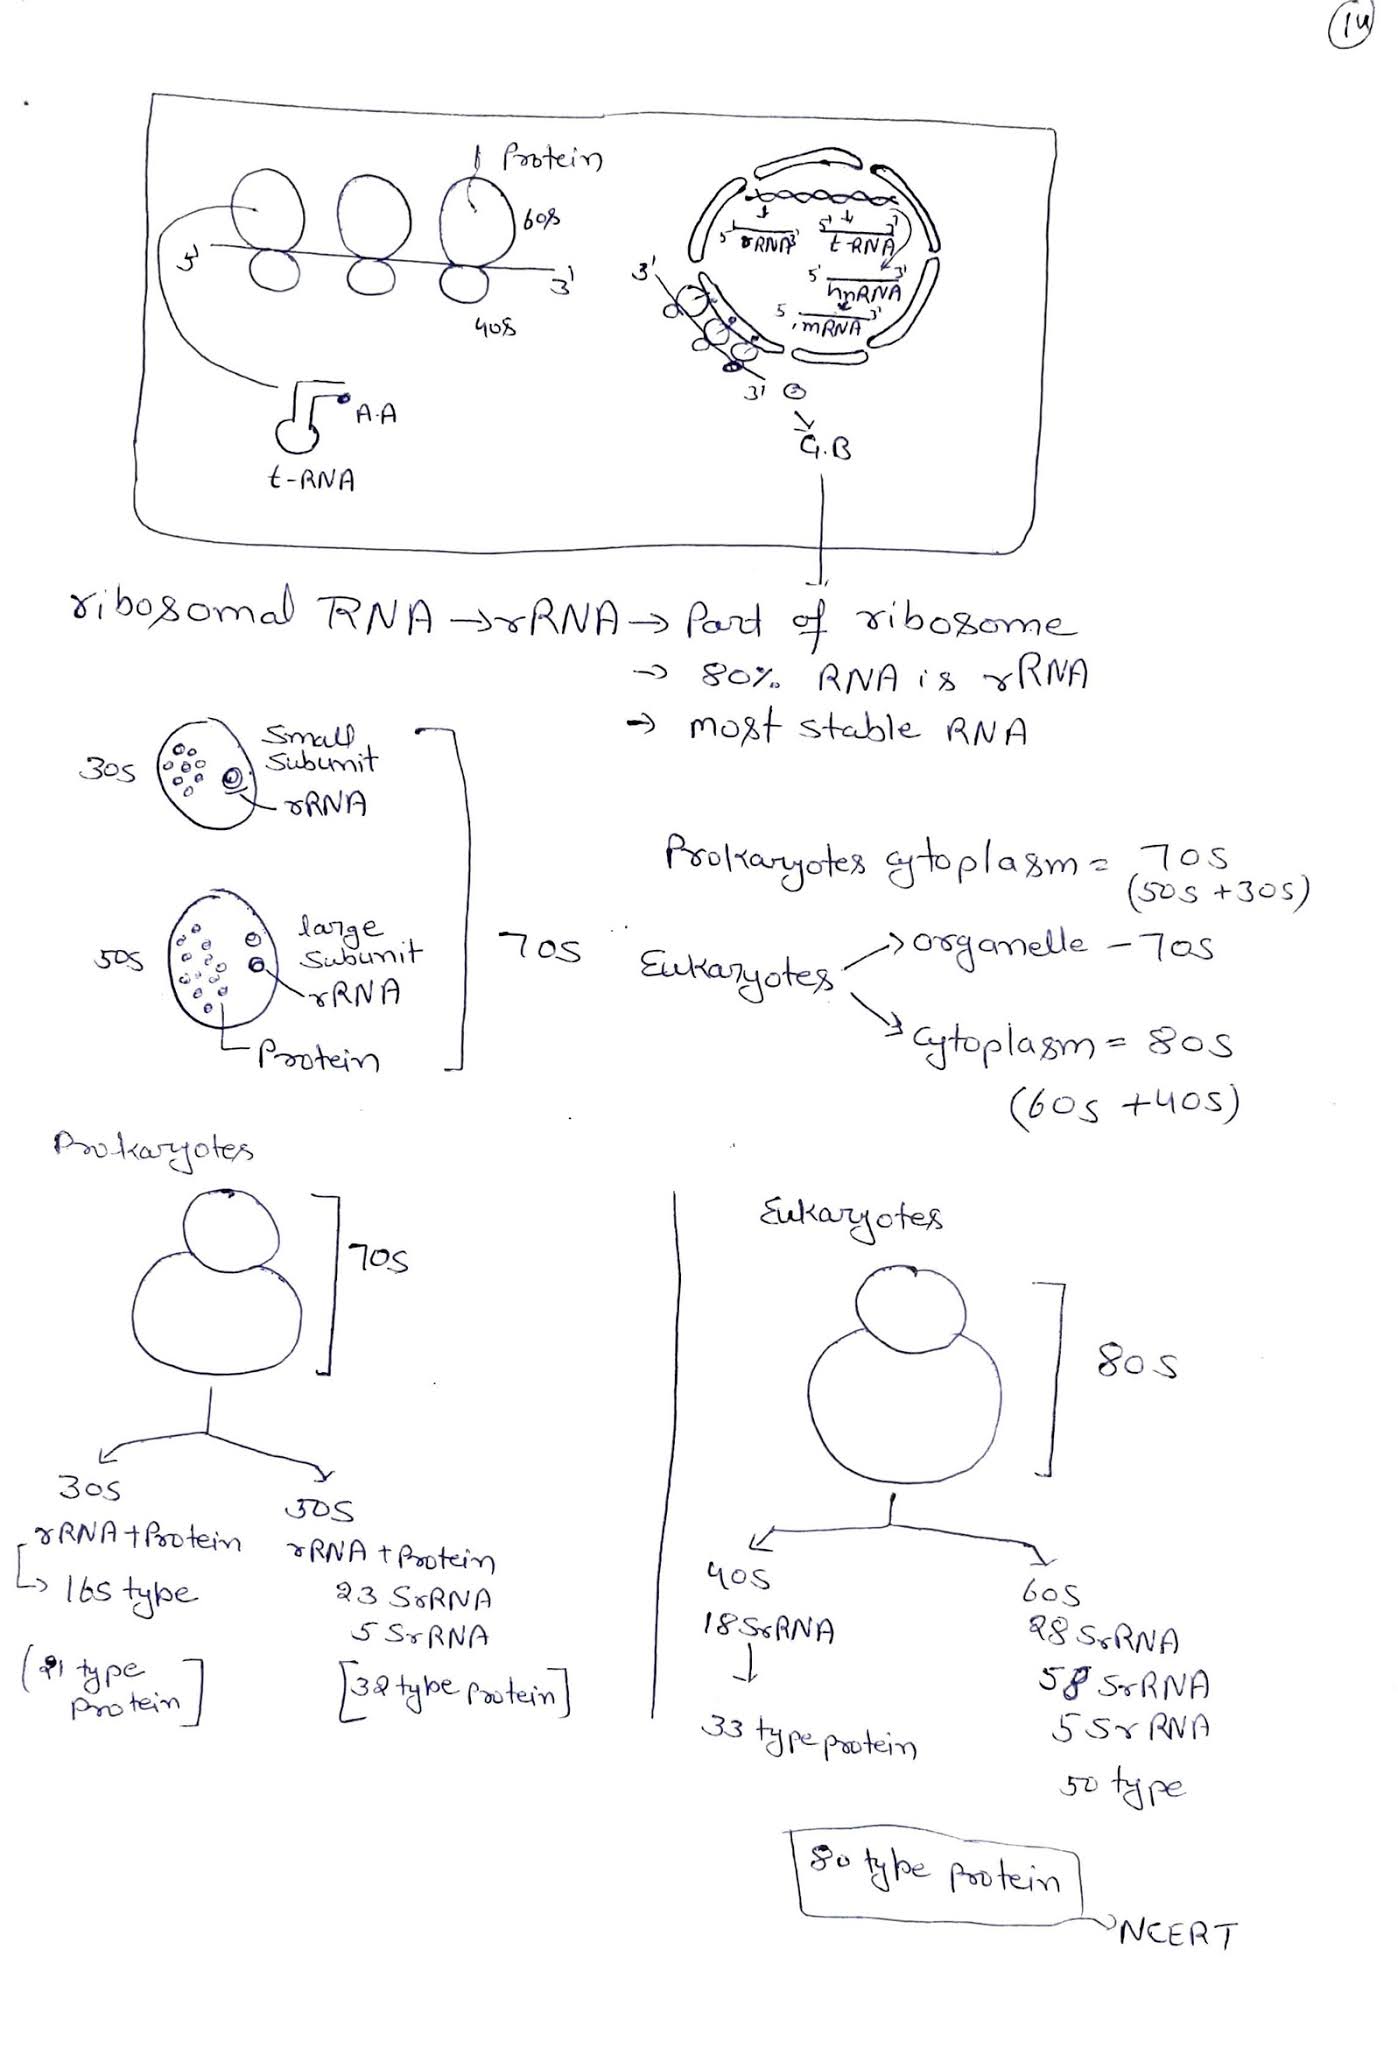 14
Protein
60S
5'
3'
40S
A.A
t-RNA
5' rRNA 3'
5' t-RNA 3'
5' 3'
hnRNA
5 3'
mRNA
3'
3'
G.B
ribosomal RNA → rRNA → Part of ribosome
→ 80% RNA is rRNA
→ most stable RNA
30S
Small
Subunit
rRNA
50S
large
Subunit
rRNA
Protein
70S
Prokaryotes cytoplasm = 70S
(50S + 30S)
Eukaryotes → organelle - 70S
→ Cytoplasm = 80S
(60S + 40S)
Prokaryotes
70S
30S
rRNA + Protein
→ 16S type
(21 type
Protein]
50S
rRNA + Protein
23 SrRNA
5 SrRNA
[32 type Protein]
Eukaryotes
80S
40S
18 SrRNA
↓
33 type protein
60S
28 SrRNA
58 SrRNA
5 Sr RNA
50 type
80 type protein
→ NCERT